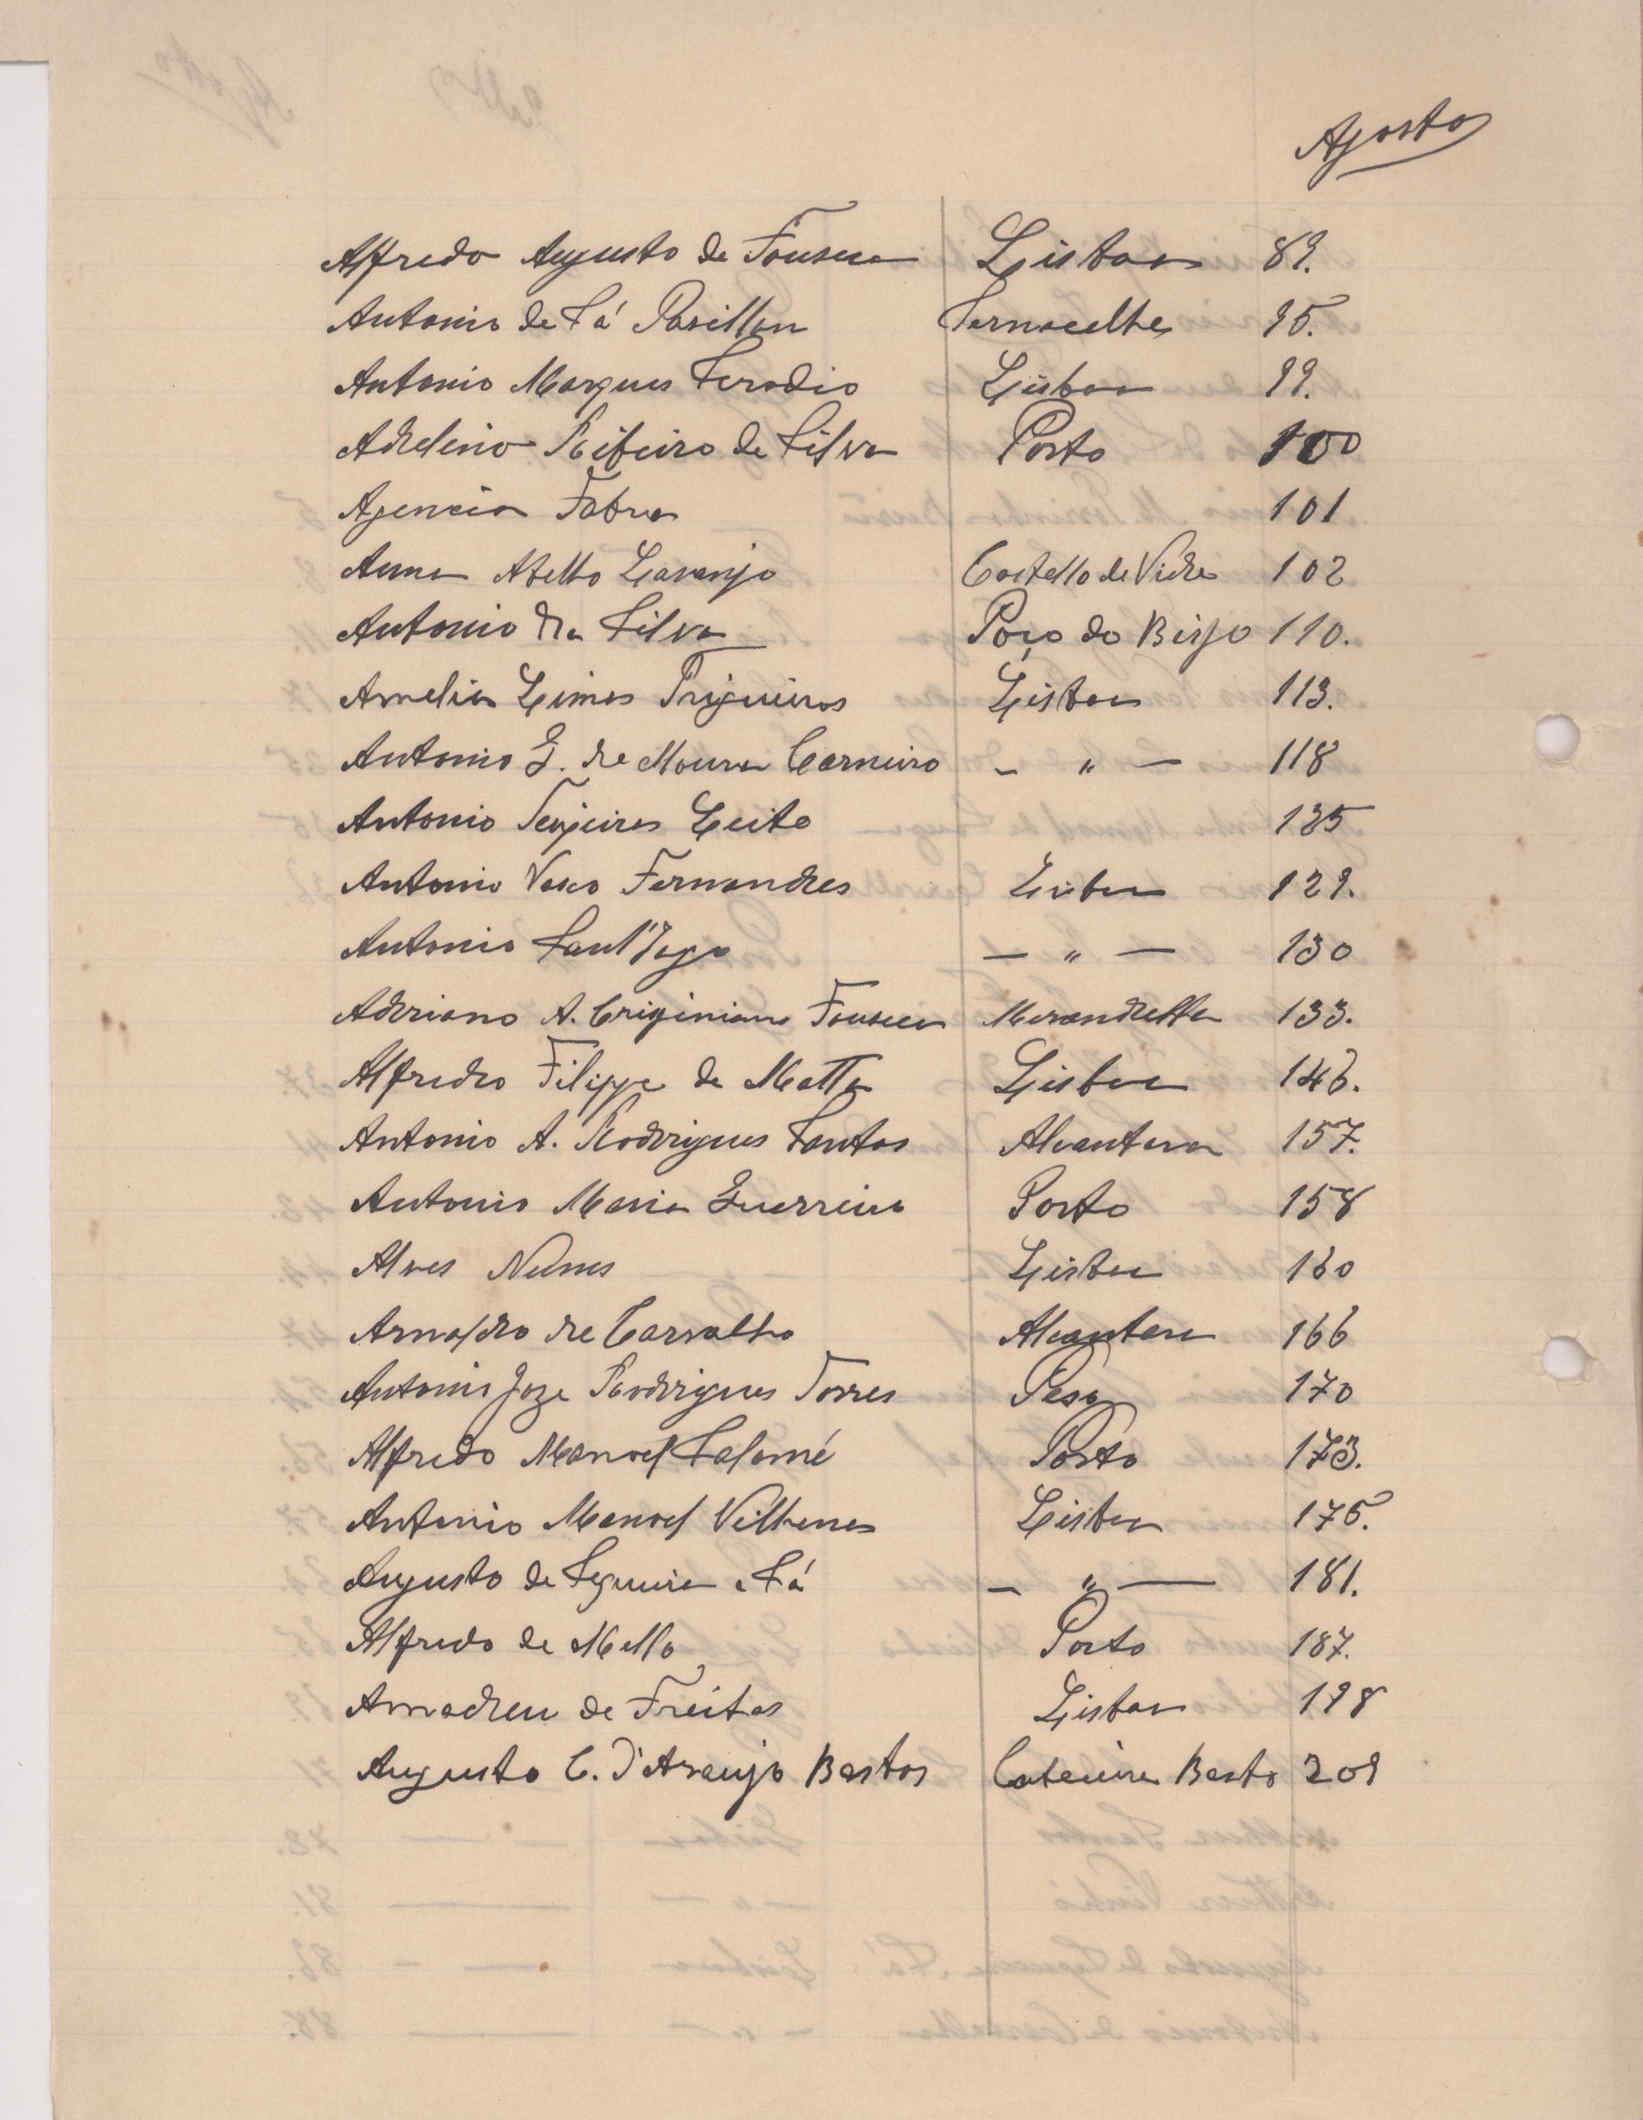 Agosto
Alfredo Augusto da Fonseca Lisboa 89.
Antonio de Sá Pavillon Sernacelhe 95.
Antonio Marques Serodio Lisboa 99.
Adelino Ribeiro da Silva Porto 100
Agencia Fabra 101
Anna Abelho Laranjo Castello de Vide 102
Antonio da Silva Poço do Bispo 110.
Amelia Lima Trigueiros Lisboa 113.
Antonio G. de Moura Carneiro – " — 118
Antonio Teixeira Leite 125
Antonio Vasco Fernandes Lisboa 129.
Antonio Sant'Iago — " — 130
Adriano A. Fonseca Mirandella 133.
Alfredo Filippe da Matta Lisboa 146.
Antonio A. Rodrigues Santos Alcantara 157.
Antonio Maria Guerreiro Porto 158
Alves Nunes Lisboa 160
Arnaldo de Carvalho Alcantara 166
Antonio Joze Rodrigues Torres Peso 170
Alfredo Manoel Salomé Porto 173.
Antonio Manoel Vilhena Lisboa 175.
Augusto de Sequeira e Sá – " — 181.
Alfredo de Mello Porto 187.
Amadeu de Freitas Lisboa 198
Augusto C. d'Araujo Bastos Basto 209